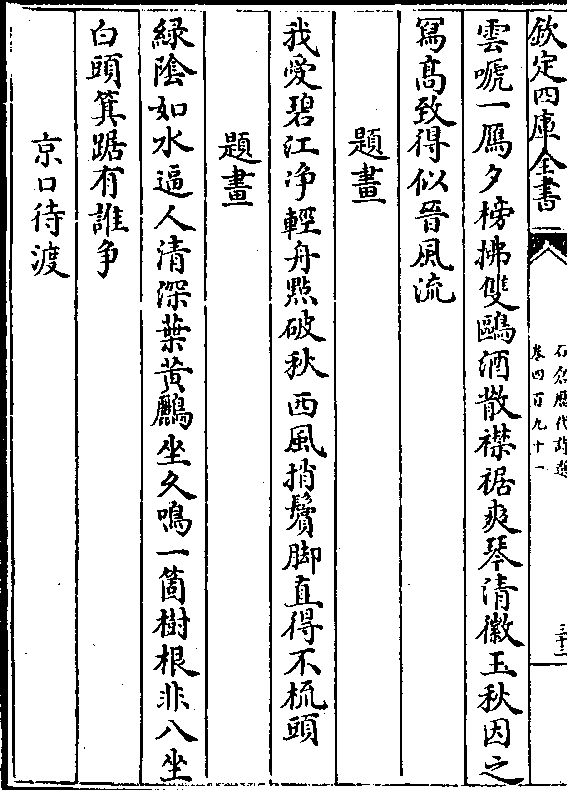 欽定四庫全書
石倉歷代詩選
卷四百九十一
三十三
雲唬一鴈夕榜拂雙鷗酒散襟裾爽琴清徽玉秋因之
冩髙致得似晉風流
題畫
我愛碧江净輕舟㸃破秋西風捎鬢脚直得不梳頭
題畫
綠隂如水逼人清深葉黄鸝坐久鳴一箇樹根非八坐
白頭箕踞有誰争
京口待渡